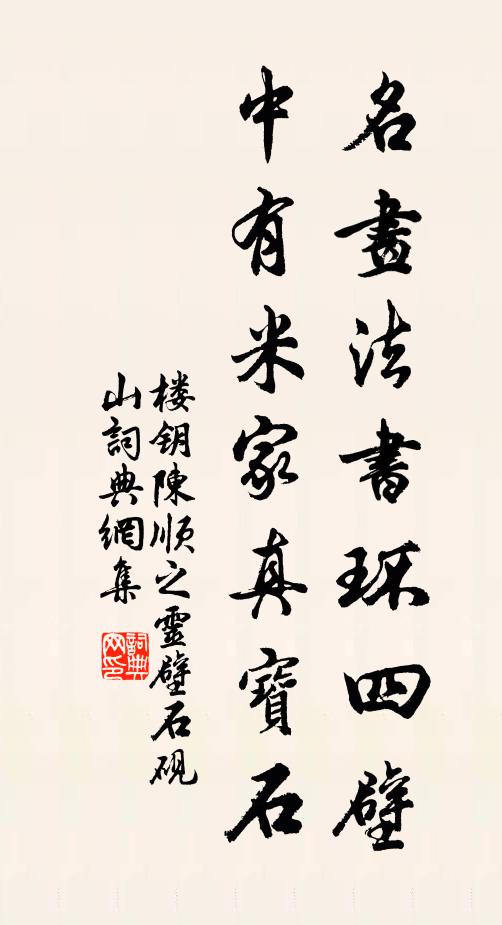 名畫法書环四壁
中有米家真寶石
楼钥陳順之靈璧石硯
山詞典網集
詞典
网印